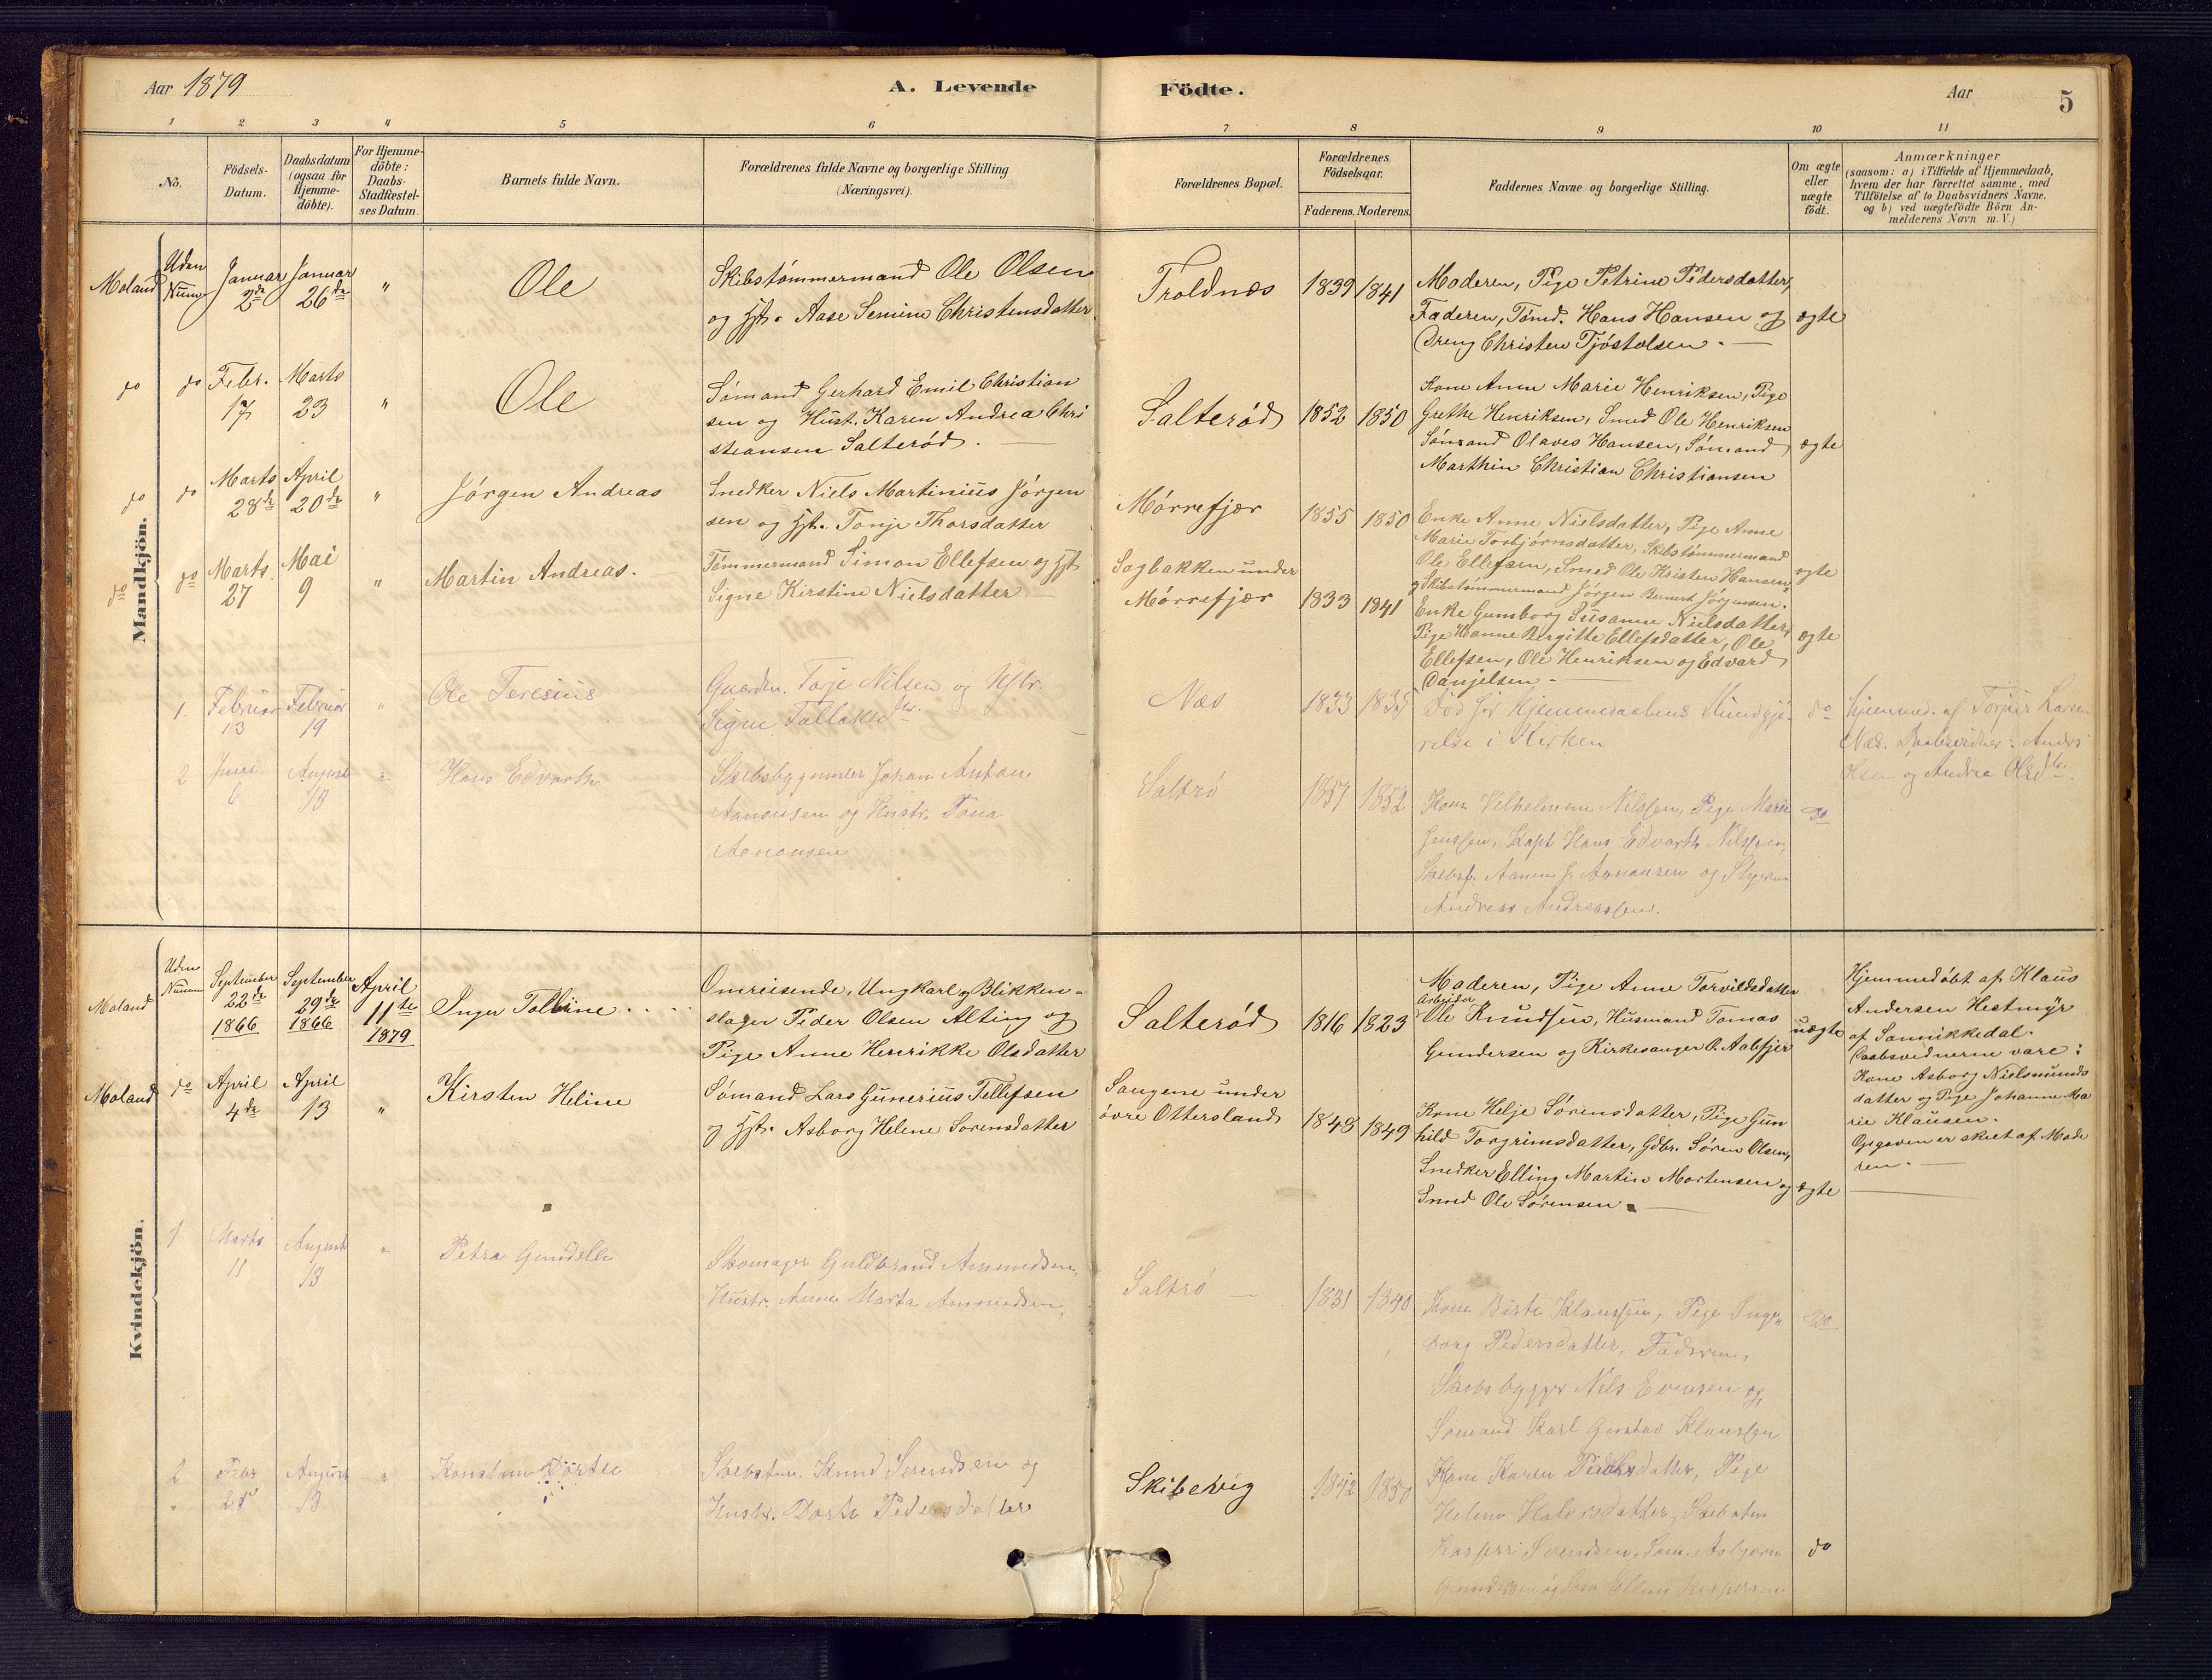 Aar 1879
A. Levende
Födte.
Aar
5
1
2
3
4
5
6
7
8
9
10
11
No.
Födsels-
Datum.
Daabsdatum
(ogsaa for
Hjemme-
döbte).
For Hjemme-
döbte:
Daabs-
Stadfæstel-
ses Datum.
Barnets fulde Navn.
Forældrenes fulde Navne og borgerlige Stilling
(Næringsvei).
Forældrenes Bopæl.
Forældrenes
Födselsaar.
Faderens. Moderens.
Faddernes Navne og borgerlige Stilling.
Om ægte
eller
uægte
födt.
Anmærkninger
(saasom: a) i Tilfælde af Hjemmedaab,
hvem der har forrettet samme, med
Tilföielse af to Daabsvidners Navne,
og b) ved uægtefödte Börn An-
melderens Navn m. V.)
Mandkjön.
Moland
Uden
Num
Januar
2de
Januar
26de
"
Ole
Skibstömmermand Ole Olsen
og Hst. Aase Semine Christensdatter
Troldnæs
1839
1841
Moderen, Pige Petrine Pedersdatter,
Faderen, Tömd. Hans Hansen og
Dreng Christen Tjöstolsen.
ægte
do
do
Febr.
17
Marts
23
"
Ole
Sömand Gerhard Emil Christian
sen og Hust. Karen Andrea Chri
stiansen Salteröd.
Salteröd
1852
1850
Kone Anne Marie Henriksen, Pige
Grethe Henriksen, Smed Ole Henriksen
Sömand Olaves Hansen, Sömand
Marthin Christian Christiansen
ægte
do
do
Marts
28de
April
20de
"
Jörgen Andreas
Snedker Niels Martinius Jörgen
sen og Hst. Tonje Thorsdatter
Mörrefjær
1855
1850
Enke Anne Nielsdatter, Pige Anne
Marie Torbjörnsdatter, Skibstömmermand
Ole Ellefsen, Smed Ole Kristen Hansen,
og Skibstömmermand Jörgen Bernert Jörgensen.
ægte
do
do
Marts
27
Mai
9
"
Martin Andreas.
Tömmermand Simon Ellefsen og Hst
Signe Kirstine Nielsdatter
Sagbakken under
Mörrefjær
1833
1841
Enke Gunborg Susanne Nielsdatter,
Pige Hanne Birgitte Ellefsdatter, Ole
Ellefsen, Ole Henriksen og Edvard
Danjelsen
ægte
1.
Februar
13
Februar
19
"
Ole Teresius
Gaardbr. Torje Nilsen og Hstr.
Signe Tallaksdtr.
Næs
1833
1835
Död för Hjemmedaabens Kundgjö-
relse i Kirken
do
Hjemmed. af Larsen
Næs. Daabsvidner: Andr.
Olsen og Andrea Olsdtr.
2
Juni
6
August
13
"
Hans Edvarth
Skibsbygmester Johan Anton
Aanonsen og Hustr. Tona
Aanonsen
Saltrö
1857
1852
Kone Vilhelmine Nilssen, Pige Marie
Jenssen, Kapt Hans Edvarth Nilssen,
Skibsf. Aanen J. Aanonsen og Styrm.
Andreas Andreassen.
do
Kvindekjön.
Moland
Uden
Numm
September
22de
1866
September
29de
1866
April
11te
1879
Inger Tolline
Omreisende, Ungkarl og Blikken-
slager Peder Olsen Alting og
Pige Anne Henrikke Olsdatter
Salteröd
1816
1823
Moderen, Pige Anne Torvildsdatter
Arbeider
Ole Knudsen, Husmand Tomas
Gundersen og Kirkesanger O. Aalefjer
uægte
Hjemmedöbt af Klaus
Andersen Hestmyr
af Sannikkedal.
Daabsvidnerne vare:
Kone Asborg Nielsmunds
datter og Pige Johanne Ma
rie Klausen.
Opgaven er skeet af Mode
ren.
Moland
do
April
4de
April
13
"
Kirsten Heline
Sömand Lars Gunerius Tellefsen
og Hst. Asborg Helene Sörensdatter
Saugene under
övre Ottersland
1848
1849
Kone Helje Sörensdatter, Pige Gun
hild Torgrimsdatter, Gdbr. Sören Olsen,
Snedker Elling Martin Mortensen og
Smed Ole Sörensen.
ægte
1
Marts
11
August
13
"
Petra Gundelle
Skomager Guldbrand Amundsen,
Hustr. Anne Marta Amundsen,
Saltrö
1831
1840
Kone Birte Klaussen, Pige Inge-
borg Pedersdatter, Faderen,
Skibsbygger Nils Evensen og,
Sömand Karl Gustav Klaussen
do
2
25
August
13
"
Dorthe
Skibstm. Knud Svendsen og
Hustr. Dorte Pedersdatter
Skibevig
1842
1850
Kone Karen Pedersdatter, Pige
Helene Halvorsdatter, Skibstm
Kasper Svendsen, Söm. Asbjörn
Gundersen og Söm Elling Kaspersen
do